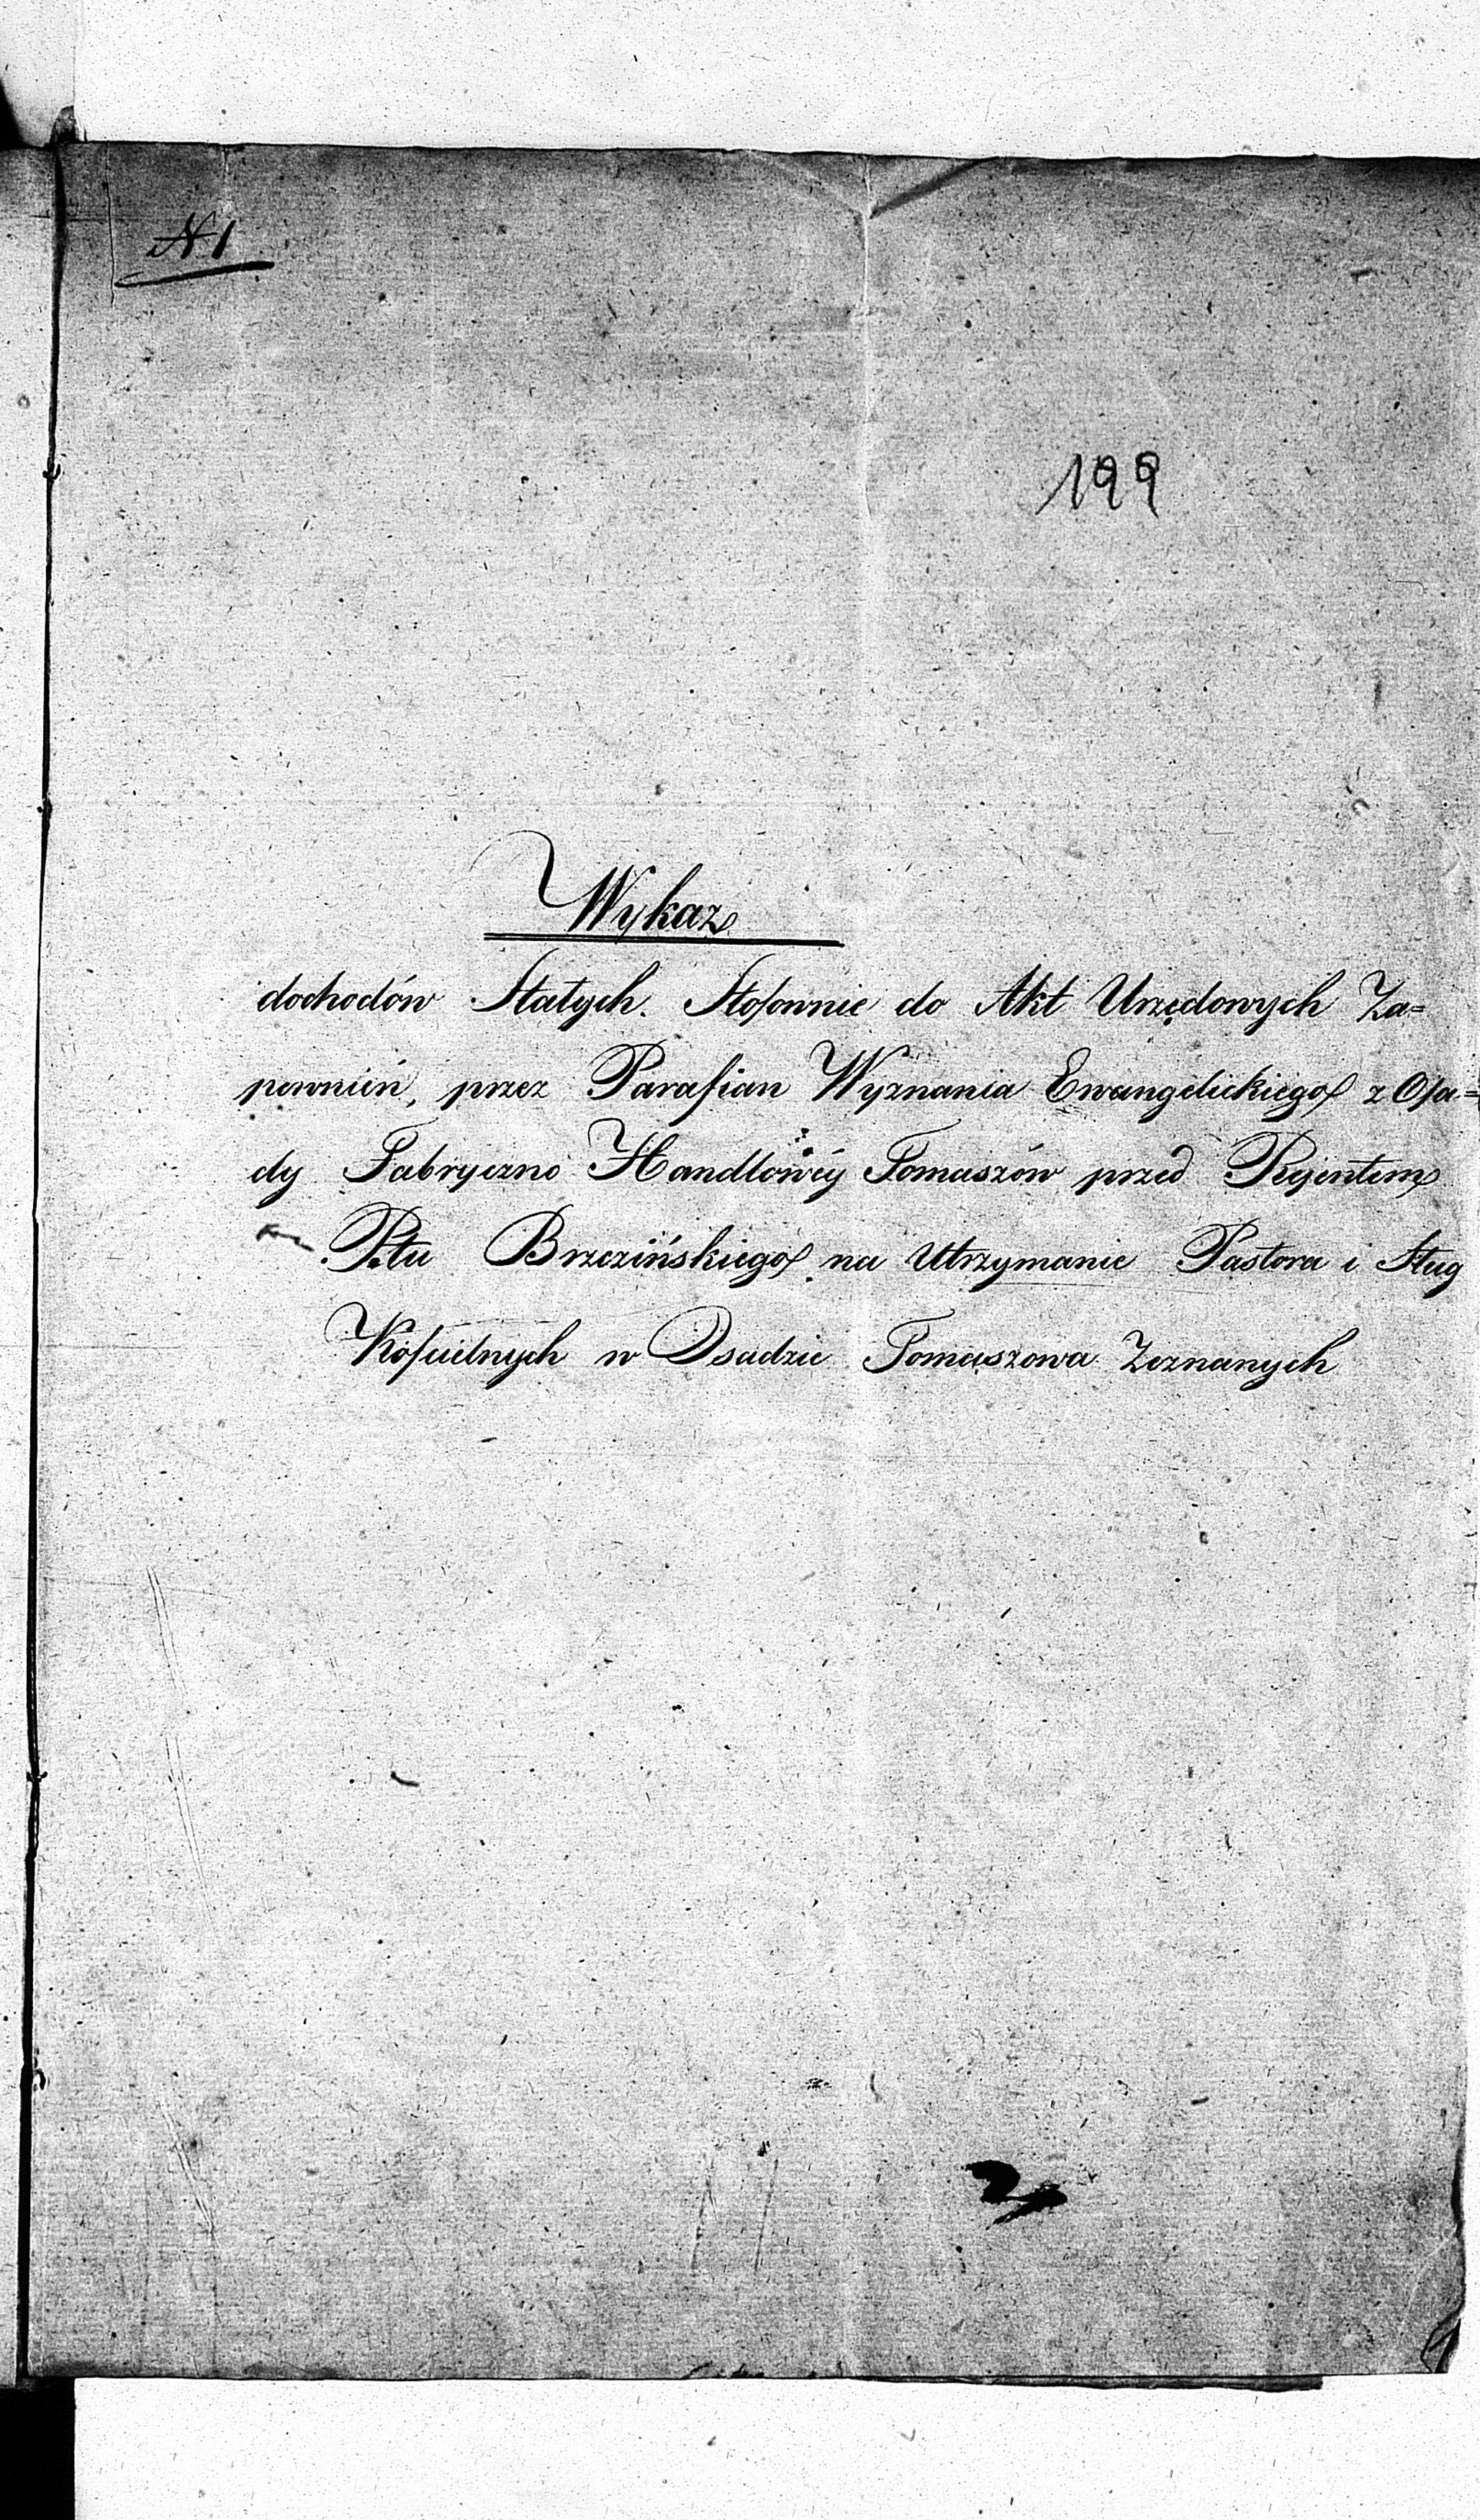 N 1
199
Wykaz
dochodów Stałych. Stosownie do Akt Urzędowych Za=
pewnień, przez Parafian Wyznania Ewangelickiego z Osa=
dy Fabryczno Handlowéy Tomaszów przed Rejentem
Ptu Brzezińskiego na Utrzymanie Pastora i Sług
Kościelnych w Osadzie Tomaszowa Zeznanych